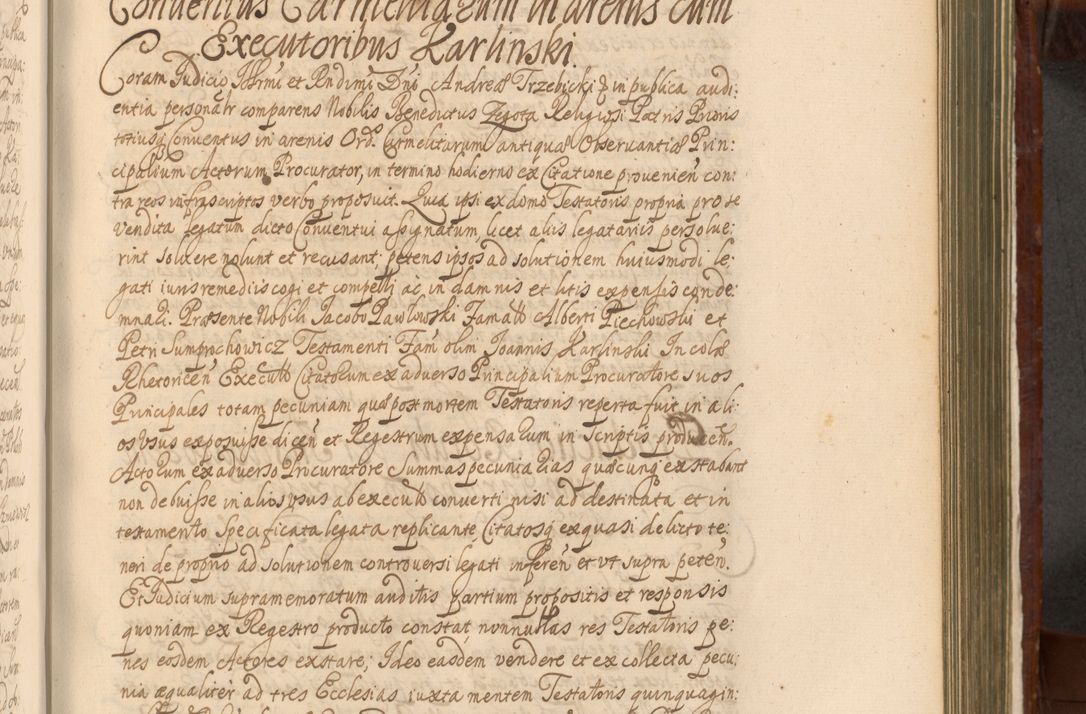 Conventus Carmelitarum in arenis cum
Executoribus Karlinski.
Coram Judicio Illrmi et Rndimi Dni Andreæ Trzebicki & in publica audi:
entia personalr comparens Nobilis Benedictus Zegota Religiosi Patris Prioris
totiusq Conventus in arenis Ord. Carmelitarum antiquæ Observantiæ Prin:
cipalium Actorum Procurator, in termino hodierno ex Citatione provenien con:
tra reos infrascriptos verbo proposuit. Quia ipsi ex domo Testatoris propria pro se
vendita legatum dicto Conventui assignatum, licet aliis legatariis persolve:
rint solvere nolunt et recusant, petens ipsos ad solutionem huiusmodi le:
gati iuris remediis cogi et compelli ac in damnis et litis expensis conde:
mnari. Præsente Nobili Jacobo Pawlowski Famatt Alberti Piechowski et
Petri Sumprochowicz Testamenti Fam olim Joannis Karlinski In colæ
Rhetoricen Executt Citatorum ex adverso Principalium Procuratore suos
Principales totam pecuniam quæ post mortem Testatoris reperta fuit in ali:
os Usus exposuisse dicen et Regestrum expensarum in scriptis producen.
Actorum ex adverso Procuratore Summas pecuniarias quæcunq exstabant
non debuisse in alios usus ab executt converti nisi ad destinata et in
testamento specificata legata replicante Citatosq ex quasi delicto te:
neri de proprio ad solutionem controversi legati inferen et ut supra peten.
Et Judicium supramemoratum auditis partium propositis et responsis
quoniam ex Regestro producto constat nonnullas res Testatoris pe:
nes eosdem Actores exstare; Ideo easdem vendere et ex collecta pecu:
nia æqualiter ad tres Ecclesias iuxta mentem Testatoris quinquagin: